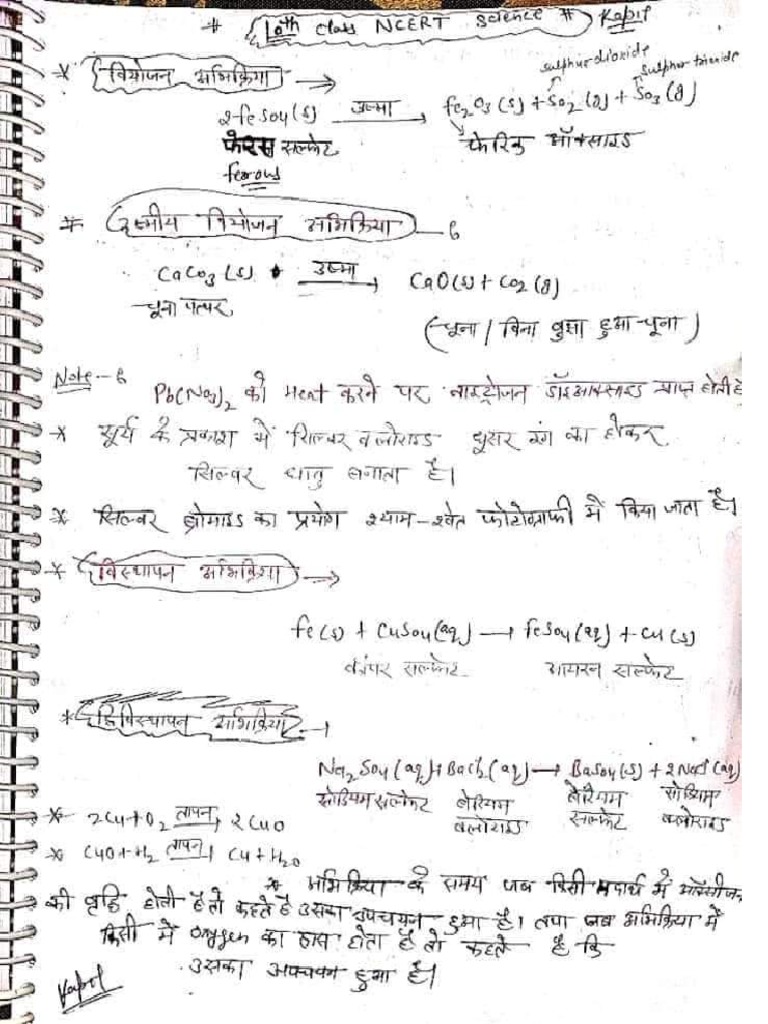 * 10th class NCERT Science * Kapil
* वियोजन अभिक्रिया →
sulphur dioxide sulphur trioxide
2FeSO4(s) उष्मा → Fe2O3(s) + SO2(g) + SO3(g)
फेरस सल्फेट फेरिक ऑक्साइड
ferous
* ऊष्मीय वियोजन अभिक्रिया -
CaCO3(s) उष्मा → CaO(s) + CO2(g)
चूना पत्थर
(चूना / बिना बुझा हुआ चूना)
Note -
Pb(NO3)2 को Heat करने पर नाइट्रोजन डॉइआक्साइड प्राप्त होती है
* सूर्य के प्रकाश में सिल्वर क्लोराइड धूसर रंग का होकर
सिल्वर धातु बनाता है।
* सिल्वर ब्रोमाइड का प्रयोग श्याम-श्वेत फोटोग्राफी में किया जाता है।
* विस्थापन अभिक्रिया →
Fe(s) + CuSO4(aq) → FeSO4(aq) + Cu(s)
कॉपर सल्फेट आयरन सल्फेट
* द्विविस्थापन अभिक्रिया →
Na2SO4(aq) + BaCl2(aq) → BaSO4(s) + 2NaCl(aq)
सोडियम सल्फेट बेरियम बेरियम सोडियम
क्लोराइड सल्फेट क्लोराइड
* 2Cu+O2 तापन → 2CuO
* CuO+H2 तापन → Cu+H2O
* अभिक्रिया के समय जब किसी पदार्थ में ऑक्सीजन
की वृद्धि होती है तो कहते है उसका उपचयन हुआ है। तथा जब अभिक्रिया में
किसी में oxygen का ह्रास होता है तो कहते है कि
उसका अपचयन हुआ है।
Kapil